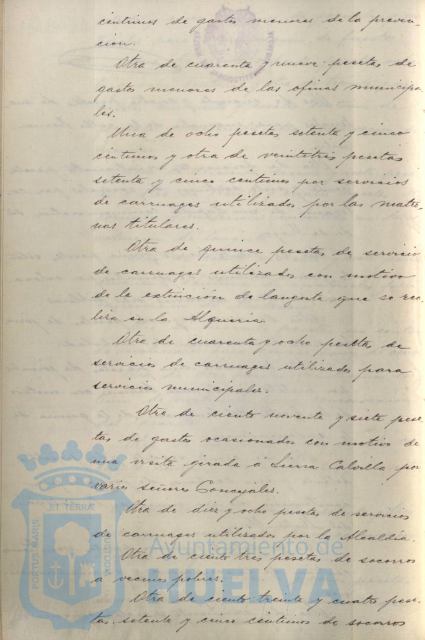 centimos de gastos menores de la preven-
cion.
Otra de cuarenta y nueve pesetas de
gastos menores de las ofinas municipa-
les.
Una de ocho pesetas setenta y cinco
centimos y otra de veintitres pesetas
setenta y cinco centimos por servicios
de carruages utilizados por las matro-
nas titulares.
Otra de quince pesetas de servicio
de carruages utilizados con motivo
de la extinción de langosta que se rea-
liza en la Alqueria.
Otra de cuarenta y ocho pesetas de
servicios de carruages utilizados para
servicios municipales.
Otra de ciento noventa y siete pese-
tas de gastos ocasionados con motivo de
una visita girada á Sierra Cabello por
varios señores Concejales.
Otra de diez y ocho pesetas de servicios
de carruages utilizados por la Alcaldia.
Otra de ciento tres pesetas de socorros
a vecinos pobres.
Otra de ciento treinta y cuatro pese-
tas, setenta y cinco centimos de socorros
PORTUS MARIS
ET TERRAE
CUSTODIA
Ayuntamiento de
HUELVA